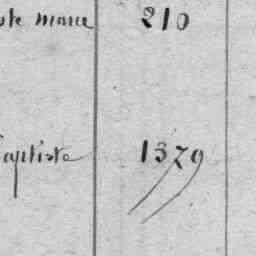 ste marie 210
Baptiste 1379